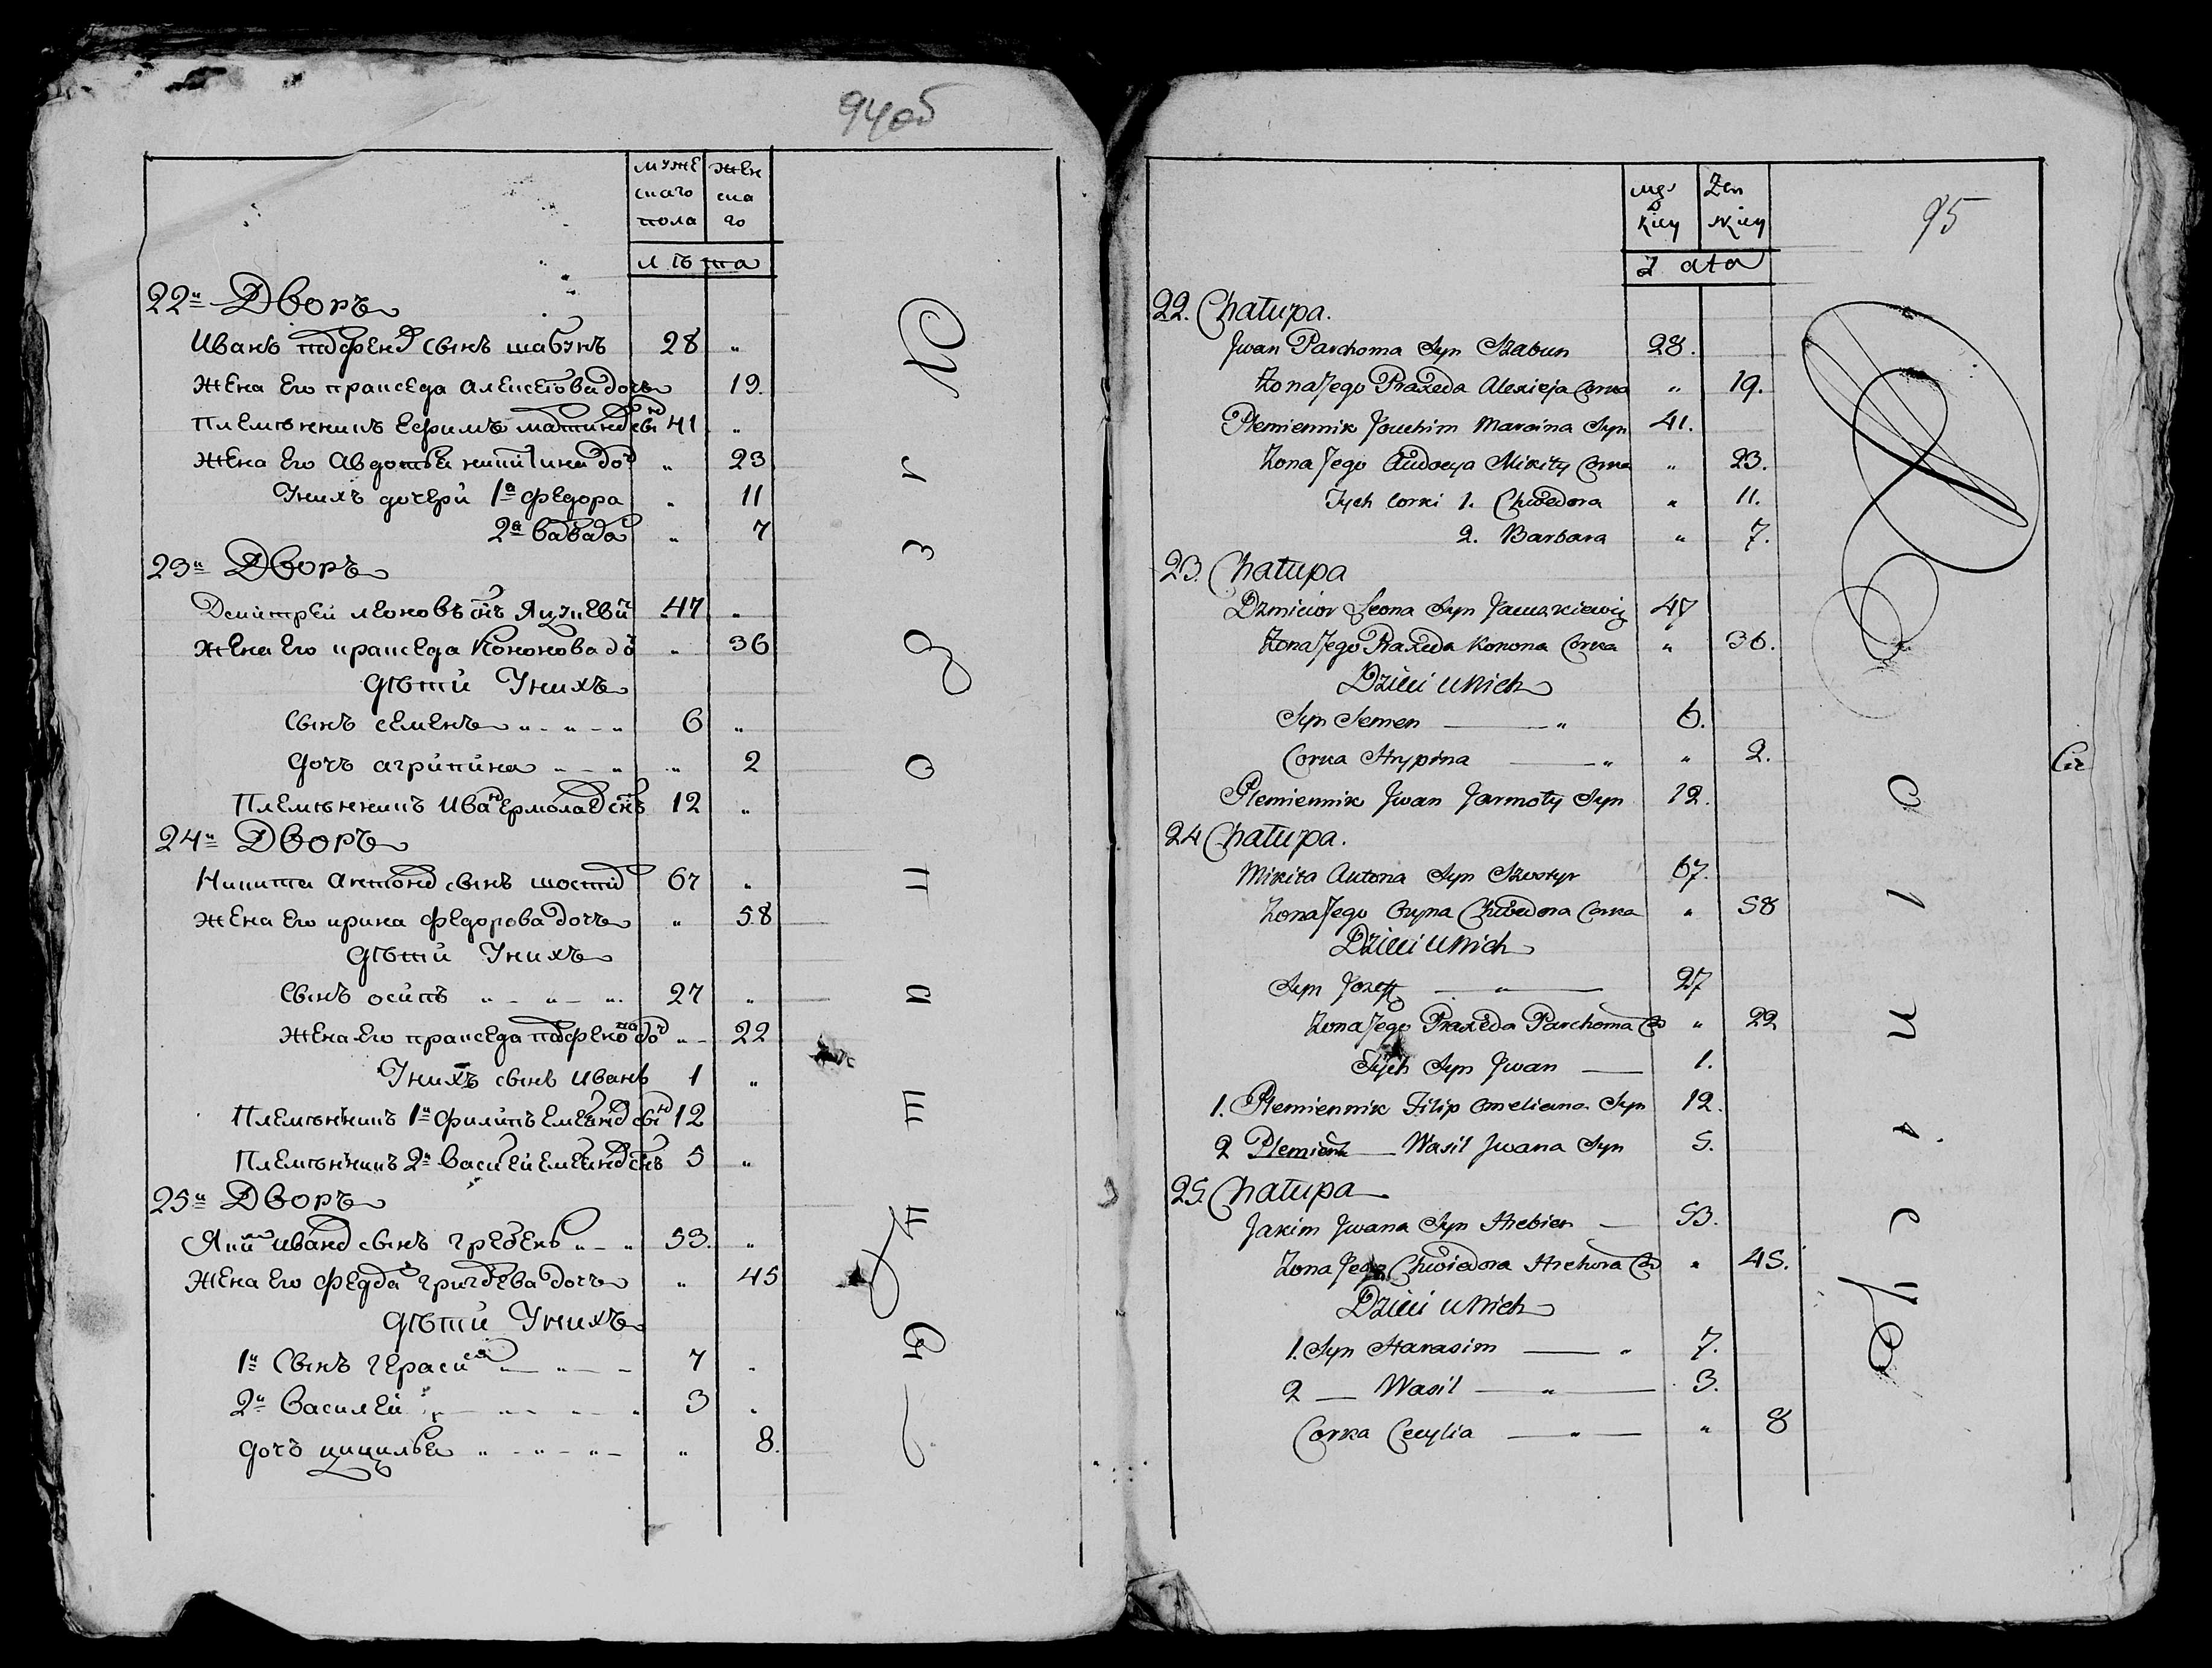 94об
муже
скаго
пола
жен
ска
го
лѣта
22й Дворъ
Иванъ парфенов сынъ шабунъ 28 "
жена его пракседа алексеева дочь 19.
племянникъ ефимъ мартинов сын 41 "
жена его авдотья никитина доч " 23
У нихъ дочери 1а федора " 11
2а варвара " 7
23й Дворъ
Демитрей леоновъ снъ Яцукевич 47 "
жена его пракседа Кононова доч " 36
дѣти У нихъ
сынъ семенъ " - " - " 6 "
дочь агрипина " - " " 2
племянникъ Иван ермолаев снъ 12 "
24й Дворъ
Никита антонов сынъ 67 "
жена его ирина федорова дочь " 58
дѣти У нихъ
сынъ осипъ " - " - " 27 "
жена его пракседа парфенова доч " - 22
У нихъ сынъ иванъ 1 "
племянникъ 1й филипъ емельянов сын 12
племянникъ 2й василей снъ 5 "
25й Дворъ
Яким иванов сынъ гребень " - " 53. "
жена его федора григорьева дочь " 45
дѣти У нихъ
1й Сынъ герасим - " - 7 "
2й василей " - " - " - " 3 "
дочь цицилья " - " - " - " 8.
męs
kiey
Zen
skiey
Lata
95
22. Chałupa.
Jwan Parchoma Syn Szabun 28.
Zona Jego Praxeda Alexieja Corka " 19.
Plemiennik Jouchim Marcina Syn 41.
Zona Jego Audocya Mikity Corka " 23.
Tych Corki 1. Chwedora " 11.
2. Barbara " 7.
23. Chałupa
Dzmicior Leona Syn Jacuszkiewicz 47
Zona Jego Praxeda Konona Corka " 36.
Dzieci u Nich
Syn Semen — " 6.
Corka Hrypina — " " 2.
Plemiennik Jwan Jarmoły Syn 12.
24 Chałupa.
Mikita Antona Syn 67.
Zona Jego Oryna Chwedora Corka " 58
Dzieci u Nich
Syn Jozef — " — 27
Zona Jego Praxeda Parchoma Co " 22
Tych Syn Jwan — 1.
1. Plemiennik Filip Omeliana Syn 12.
2 Plemien — Wasil Jwana Syn 5.
25. Chałupa
Jakim Jwana Syn Hrebień — 53.
Zona Jego Chwiedora Hrehora Co " 45.
Dzieci u Nich
1. Syn Harasim — " 7.
2 — Wasil — " — 3.
Corka Cecylia — " — " 8